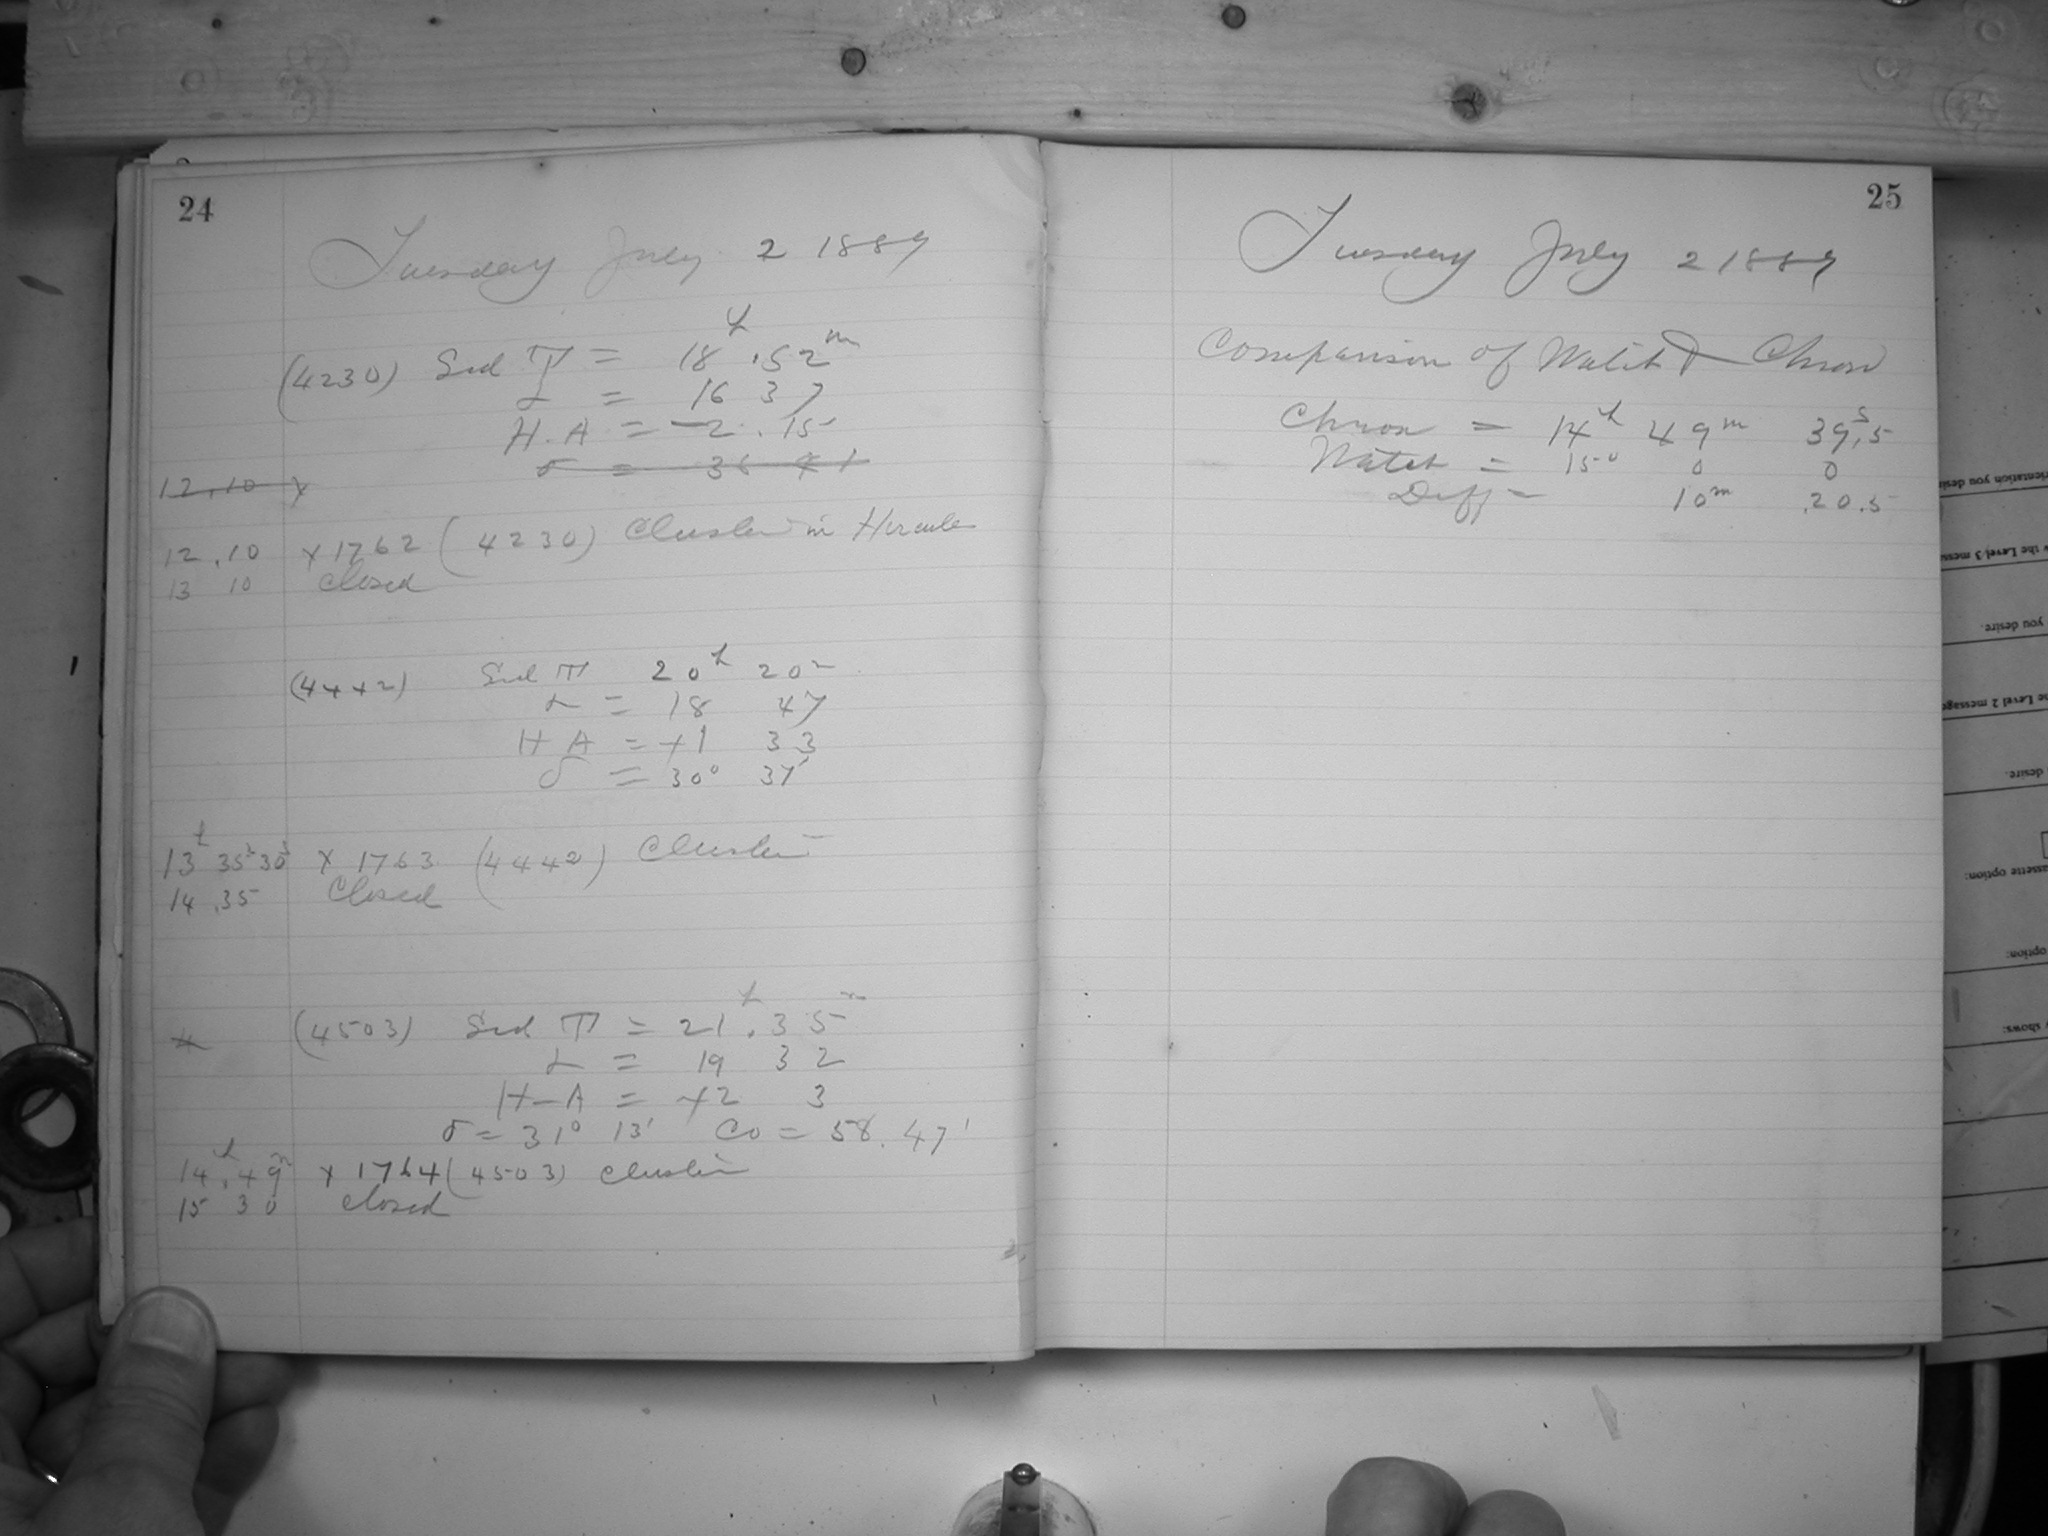 24
Tuesday July 2 1889
(4230) Sid T = 18h.52m
α = 16 37
H.A = -2.15
δ = 36 41
12,10 x
12.10 x 1762 (4230) Cluster in Hercules
13 10 closed
(4442) Sid T 20h 20m
α = 18 47
H A = +1 33
δ = 30° 37'
13h 35m 30s x 1763 (4442) Cluster
14.35 Closed
(4503) Sid T = 21h.35m
α = 19 32
H-A = +2 3
δ = 31° 13' Co = 58.47'
14h.49m x 1764 (4503) cluster
15 30 closed
25
Tuesday July 2 1889
Comparison of Watch & Chron
Chron = 14h 49m 39s.5
Watch = 15 0 0 0
Diff = 10m 20.5
you desire.
Level 2 message
desire.
option:
option:
shows: